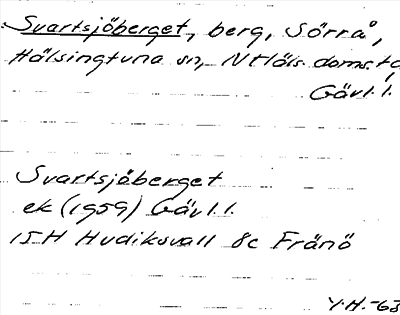 Svartsjöberget, berg, Sörrå,
Hälsingtuna sn, NHäls. doms.
Gävl.l.
Svartsjöberget
ek (1959) Gävl.l.
15H Hudiksvall 8c Fränö
Y.H.-63